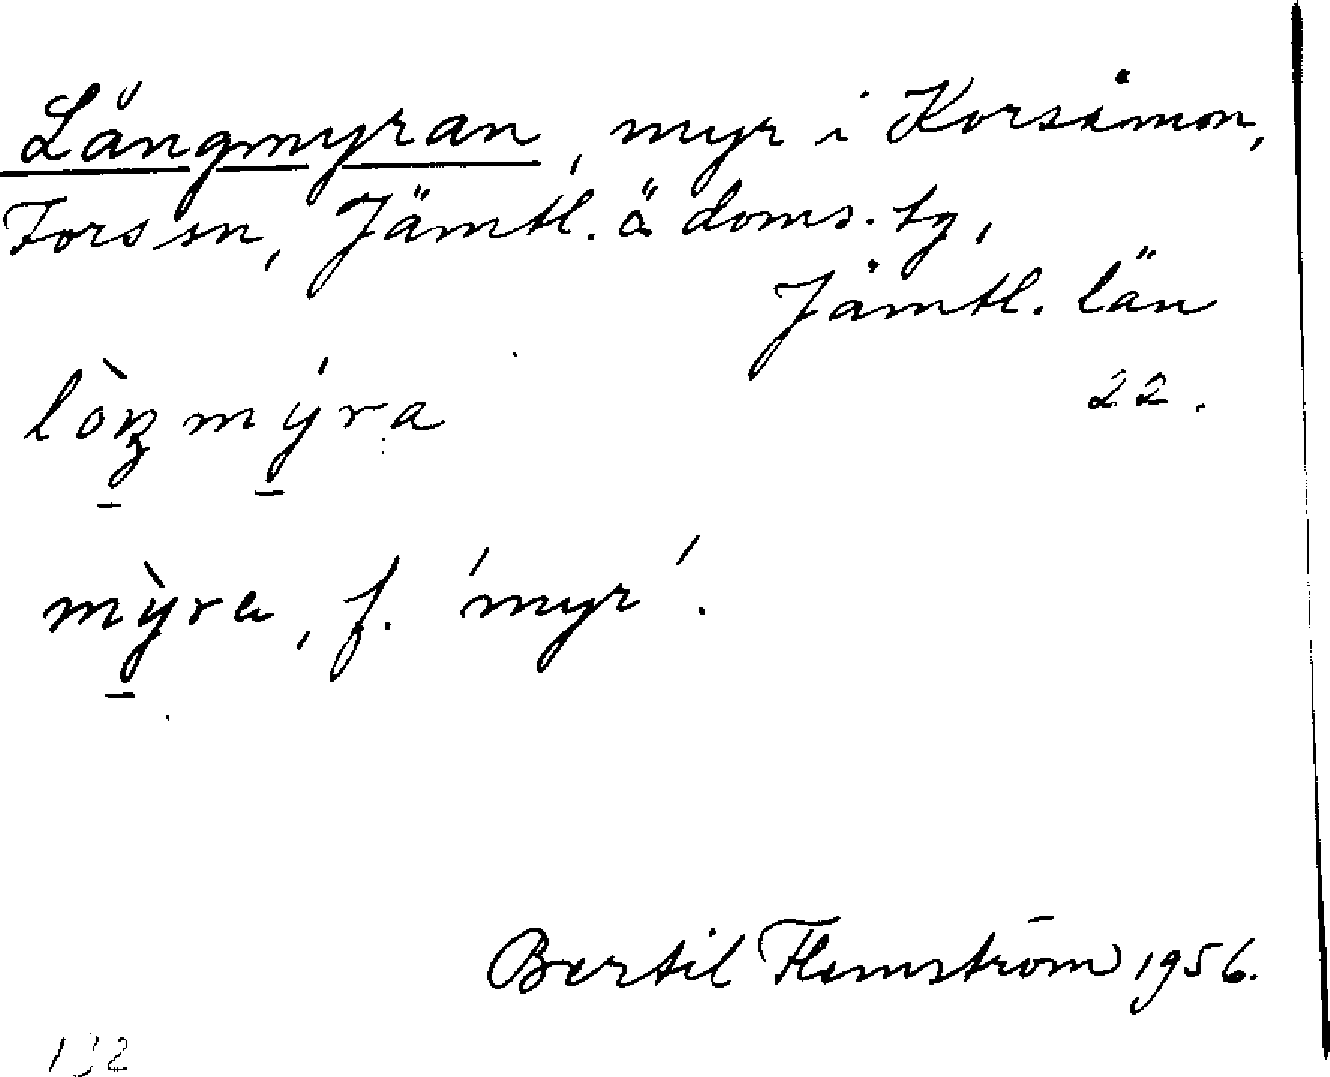 Långmyran, myr i Korsåmon,
Fors sn, Jämtl. ö. doms. tg,
Jämtl. län
22.
lòŋmýra
mỳra, f. 'myr'.
Bertil Flemström 1956.